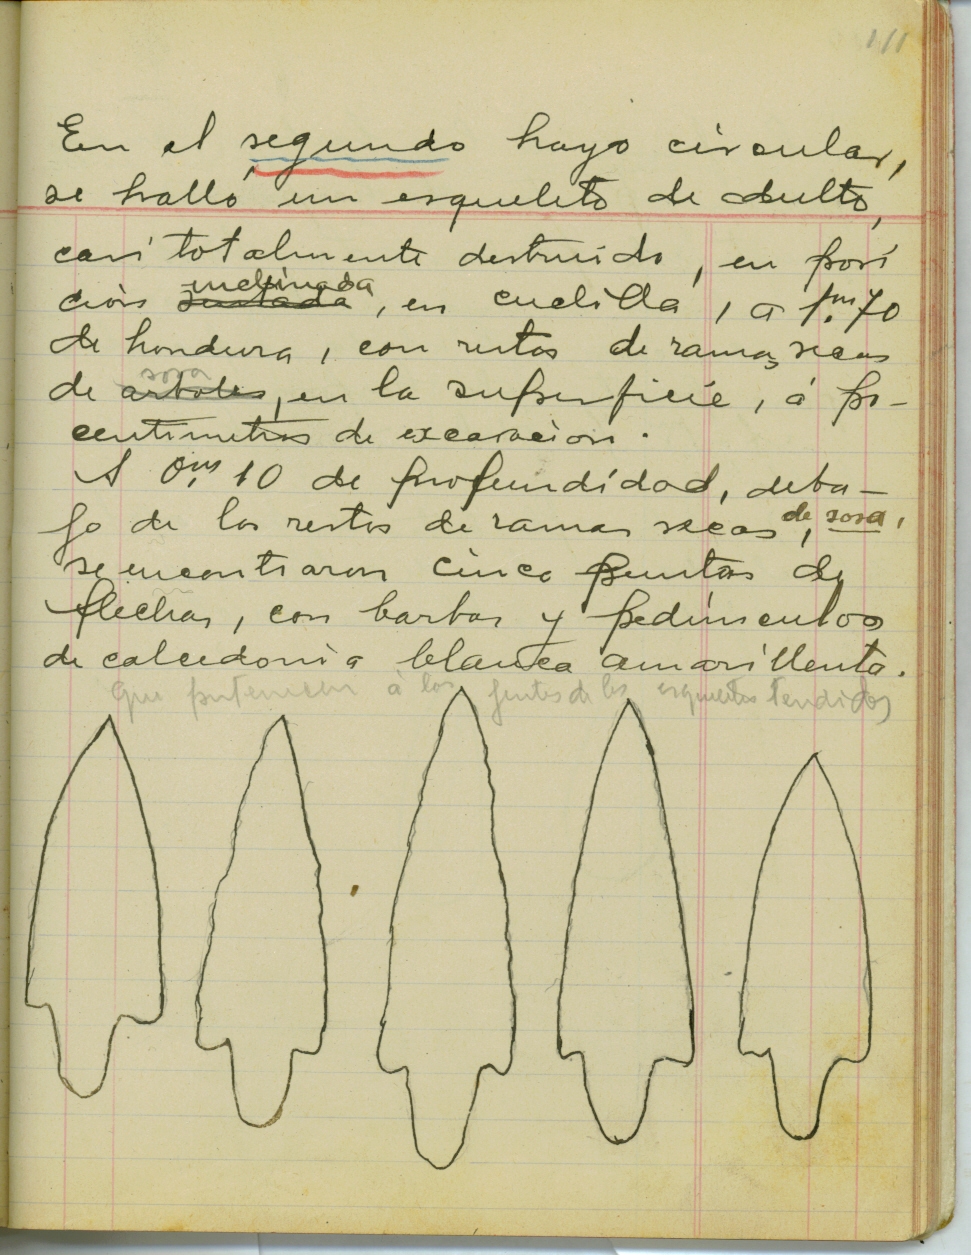 111
En el segundo hoyo circular,
se halló un esqueleto de adulto,
casi totalmente destruido, en posi
inclinada
ción sentada, en cuclilla, a 1.m 70
de hondura, con restos de ramas secas
sosa
de arboles, en la superficie, á po-
centimetros de excavacion.
A 0.m 10 de profundidad, deba-
jo de los restos de ramas secas de sosa,
se encontraron cinco puntas de
flechas, con barbas y pedúnculos
de calcedonia blanca amarillenta.
que pertenecen á los de los esqueletos tendidos